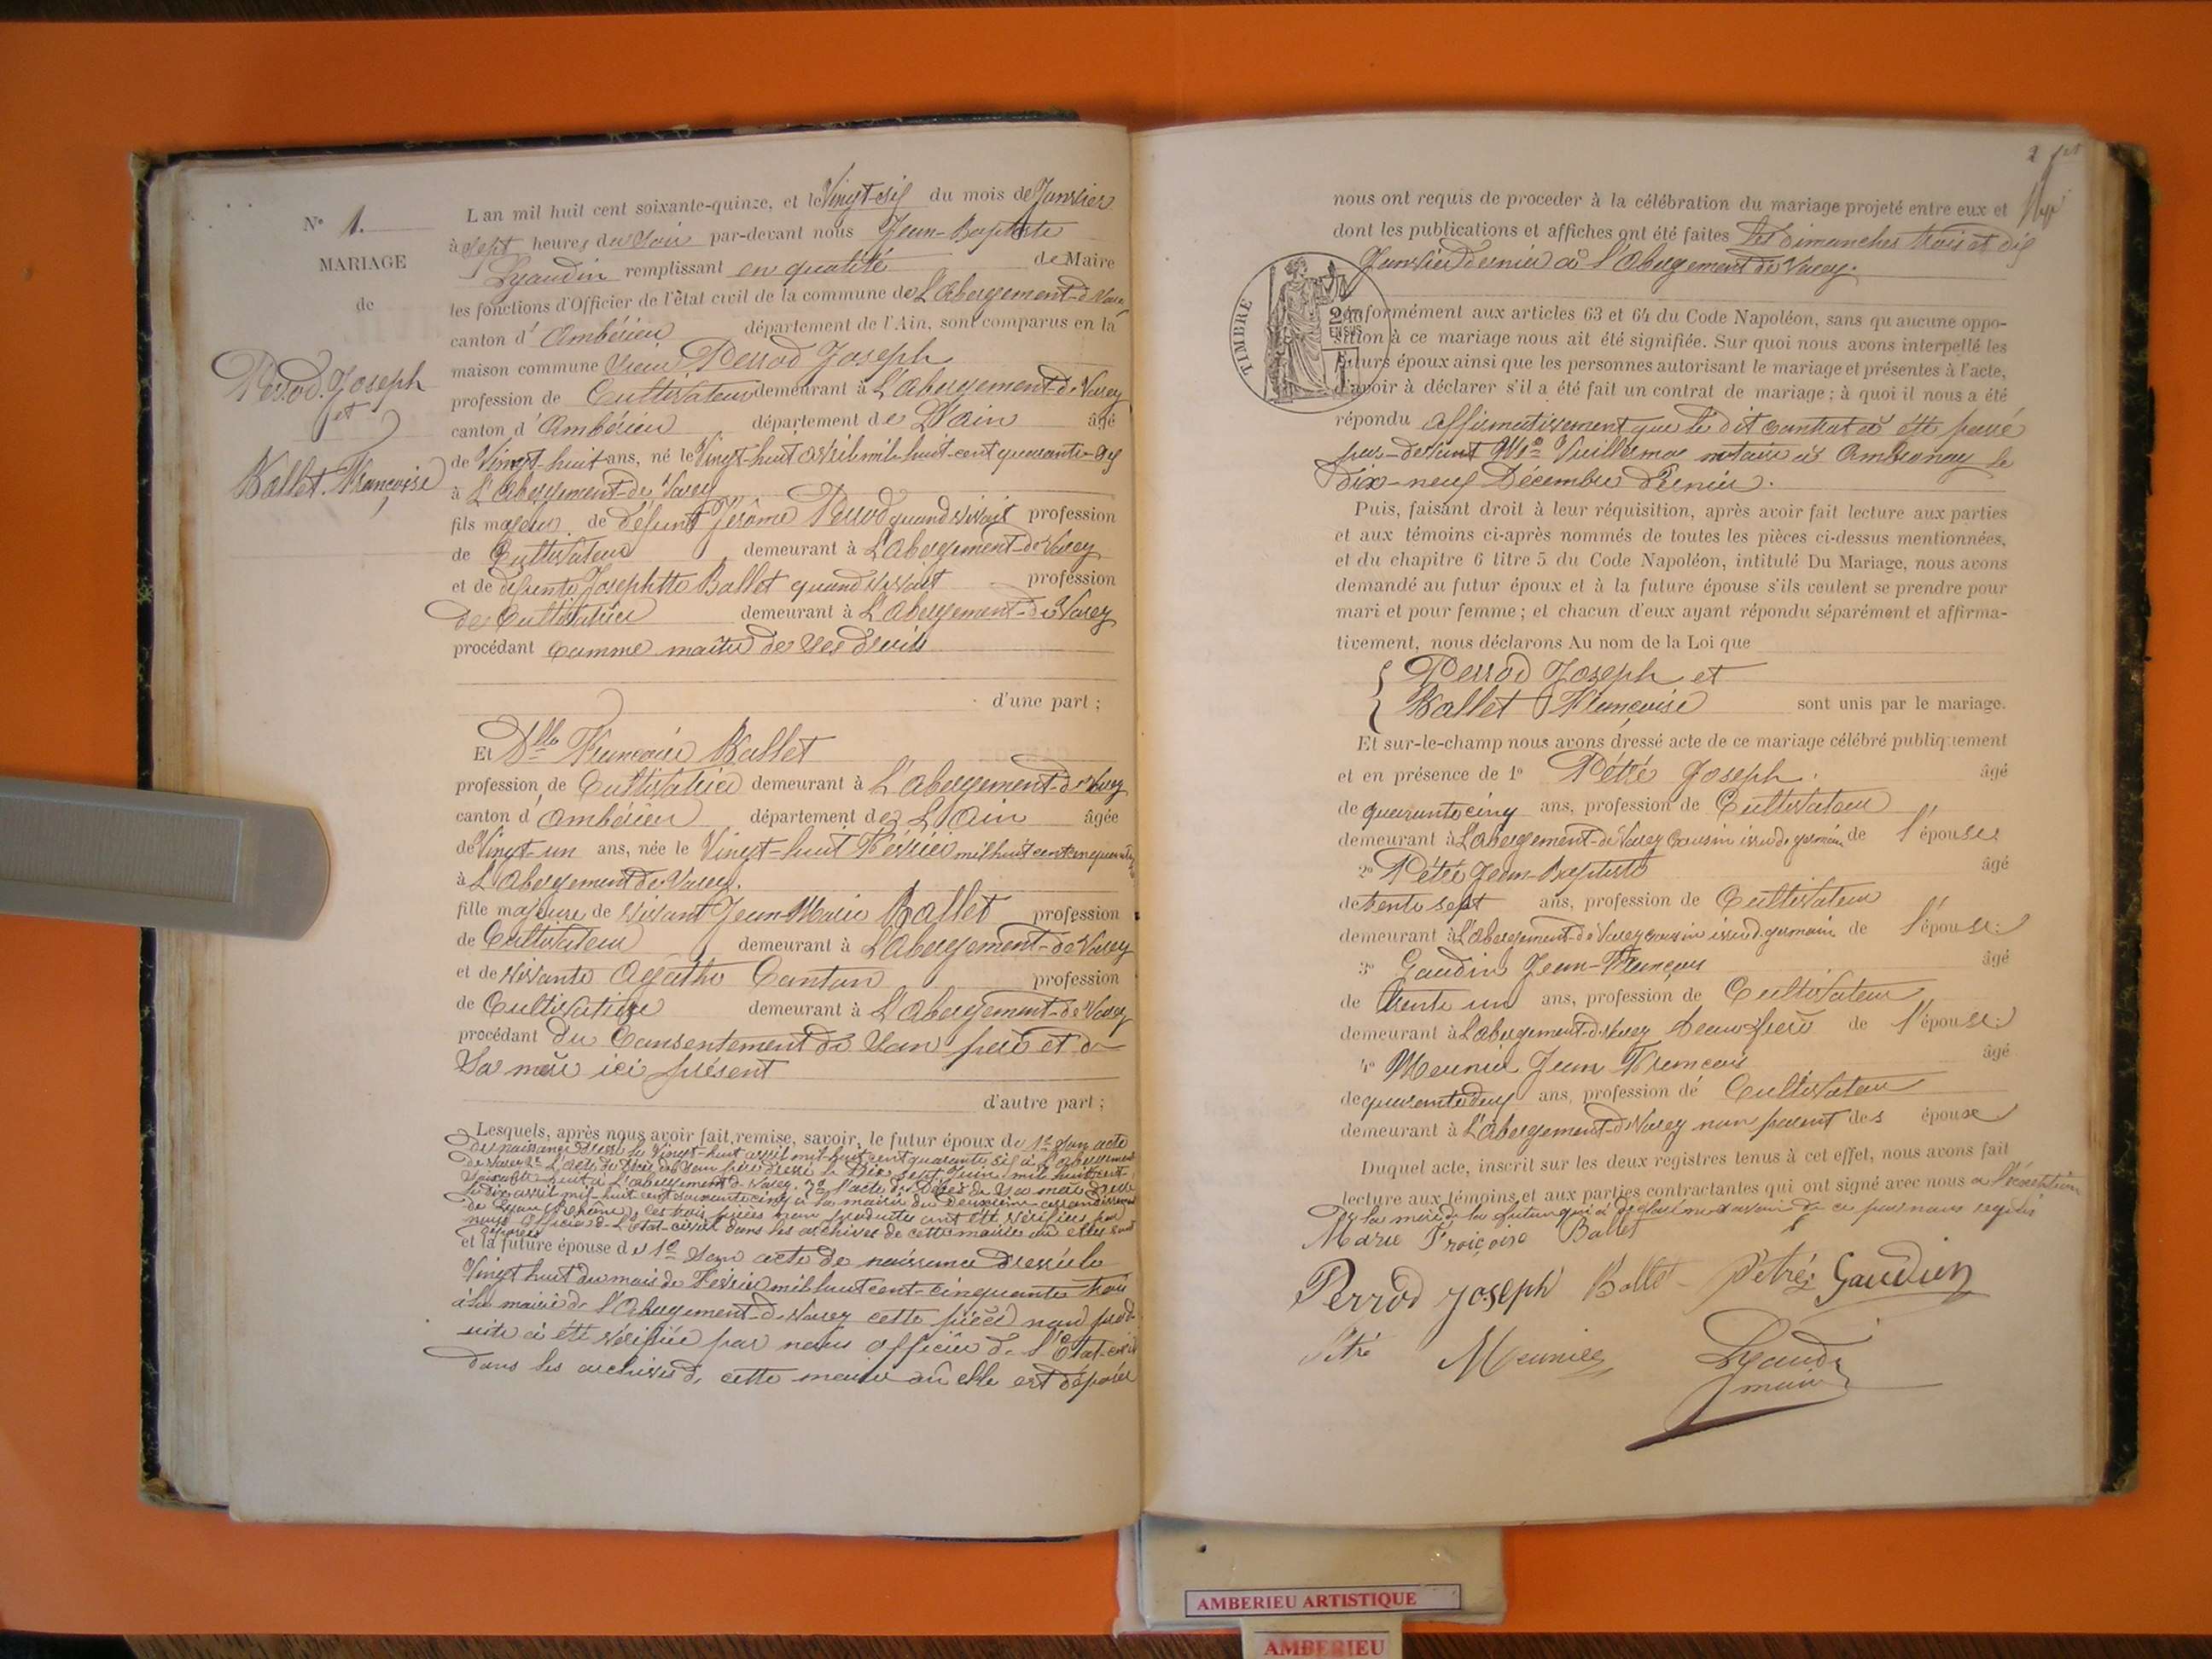 N° 1.
MARIAGE
de
Perrod Joseph
et
Ballet Françoise
L'an mil huit cent soixante-quinze, et le Vingt-six du mois de Janvier
à sept heures du soir par-devant nous Jean-Baptiste
Lyaudin remplissant en qualité de Maire
les fonctions d'Officier de l'état civil de la commune de L'Abergement-de Varey
canton d'Ambérieu département de l'Ain, sont comparus en la
maison commune Sieur Perrod Joseph
profession de Cultivateur demeurant à L'abergement-de Varey
canton d'Ambérieu département de L'Ain âgé
de Vingt-huit ans, né le Vingt-huit avril mil-huit-cent quarante-six
à L'Abergement-de Varey
fils majeur de défunt Jérôme Perrod quand vivait profession
de Cultivateur demeurant à L'Abergement-de Varey
et de défunte Josephtte Ballet quand vivait profession
de Cultivatrice demeurant à L'abergement-de Varey
procédant comme maître de ses droits
d'une part ;
Et Dlle Françoise Ballet
profession de Cultivatrice demeurant à L'abergement-de Varey
canton d'Ambérieu département de L'Ain âgée
de Vingt-un ans, née le Vingt-huit Février mil huit cent cinquante
à L'Abergement de Varey.
fille majeure de vivant Jean-Marie Ballet profession
de Cultivateur demeurant à L'Abergement-de Varey
et de vivante Agathe Cantan profession
de Cultivatrice demeurant à L'Abergement-de Varey
procédant du Consentement de son père et de
Sa mère ici présent
d'autre part ;
Lesquels, après nous avoir fait remise, savoir, le futur époux de 1° son acte
de naissance dressé le Vingt-huit avril mil-huit cent quarante six à L'abergement
de Varey 2° L'acte de décès de son père dressé le Dix sept Juin mil huit cent
soixante huit à L'abergement de Varey. 3° l'acte de Décès de sa mère dressé
le dix avril mil-huit cent soixante cinq à la mairie du Deuxième arrondissement
de Lyon (Rhône), ces trois pièces non produites ont été vérifiées par
nous officier de L'état-civil dans les archives de cette mairie où elles sont
déposées
et la future épouse de 1° son acte de naissance dressé le
Vingt huit du mois de Février mil huit cent-cinquante trois
à la mairie de l'Abergement-de Varey cette pièce non prod-
uite a été vérifiée par nous officier de l'Etat-civil
dans les archives de cette mairie où elle est déposée
2
nous ont requis de proceder à la célébration du mariage projeté entre eux et
dont les publications et affiches ont été faites les dimanches trois et dix
Janvier dernier à l'Abergement de Varey.
TIMBRE
Conformément aux articles 63 et 64 du Code Napoléon, sans qu'aucune oppo-
sition à ce mariage nous ait été signifiée. Sur quoi nous avons interpellé les
futurs époux ainsi que les personnes autorisant le mariage et présentes à l'acte,
d'avoir à déclarer s'il a été fait un contrat de mariage ; à quoi il nous a été
répondu affirmativement que le dit contrat a été passé
par-devant Me Vuillermoz notaire à Ambronay le
Dix-neuf Décembre dernier.
Puis, faisant droit à leur réquisition, après avoir fait lecture aux parties
et aux témoins ci-après nommés de toutes les pièces ci-dessus mentionnées,
et du chapitre 6 titre 5 du Code Napoléon, intitulé Du Mariage, nous avons
demandé au futur époux et à la future épouse s'ils veulent se prendre pour
mari et pour femme ; et chacun d'eux ayant répondu séparément et affirma-
tivement, nous déclarons Au nom de la Loi que
Perrod Joseph et
Ballet Françoise sont unis par le mariage.
Et sur-le-champ nous avons dressé acte de ce mariage célébré publiquement
et en présence de 1° Pétré Joseph. âgé
de quarante cinq ans, profession de Cultivateur
demeurant à L'Abergement-de Varey Cousin issu de germain de l'épouse
2° Pétré Jean-Baptiste âgé
de trente sept ans, profession de Cultivateur
demeurant à L'abergement-de Varey cousin issu d. germain de l'épouse
3° Gaudin Jean-François âgé
de trente un ans, profession de Cultivateur
demeurant à L'abergement-de Varey beau frère de l'épouse
4° Meunier Jean François âgé
de quarante deux ans, profession de Cultivateur
demeurant à L'abergement-de Varey non parent des épouse
Duquel acte, inscrit sur les deux registres tenus à cet effet, nous avons fait
lecture aux témoins et aux parties contractantes qui ont signé avec nous a l'exception
de la mère de la future qui a déclaré ne savoir de ce par nous requis
Marie Froiçoise Ballet
Perrod joseph Ballet Pétré Gaudin
Pétré Meunier Lyaudin
maire
AMBERIEU ARTISTIQUE
AMBERIEU